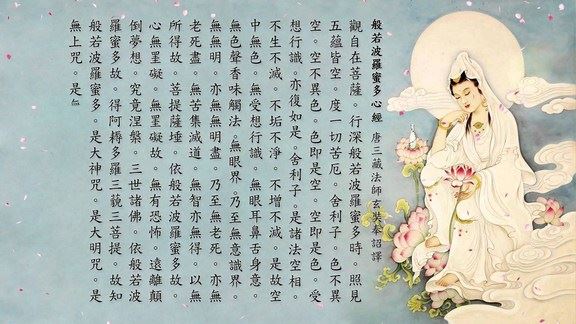 般若波羅蜜多心經 唐三藏法師玄奘奉詔譯
觀自在菩薩。行深般若波羅蜜多時。照見
五蘊皆空。度一切苦厄。舍利子。色不異
空。空不異色。色即是空。空即是色。受
想行識。亦復如是。舍利子。是諸法空相。
不生不滅。不垢不淨。不增不減。是故空
中無色。無受想行識。無眼耳鼻舌身意。
無色聲香味觸法。無眼界。乃至無意識界。
無無明。亦無無明盡。乃至無老死。亦無
老死盡。無苦集滅道。無智亦無得。以無
所得故。菩提薩埵。依般若波羅蜜多故。
心無罣礙。無罣礙故。無有恐怖。遠離顛
倒夢想。究竟涅槃。三世諸佛。依般若波
羅蜜多故。得阿耨多羅三藐三菩提。故知
般若波羅蜜多。是大神咒。是大明咒。是
無上咒。是無